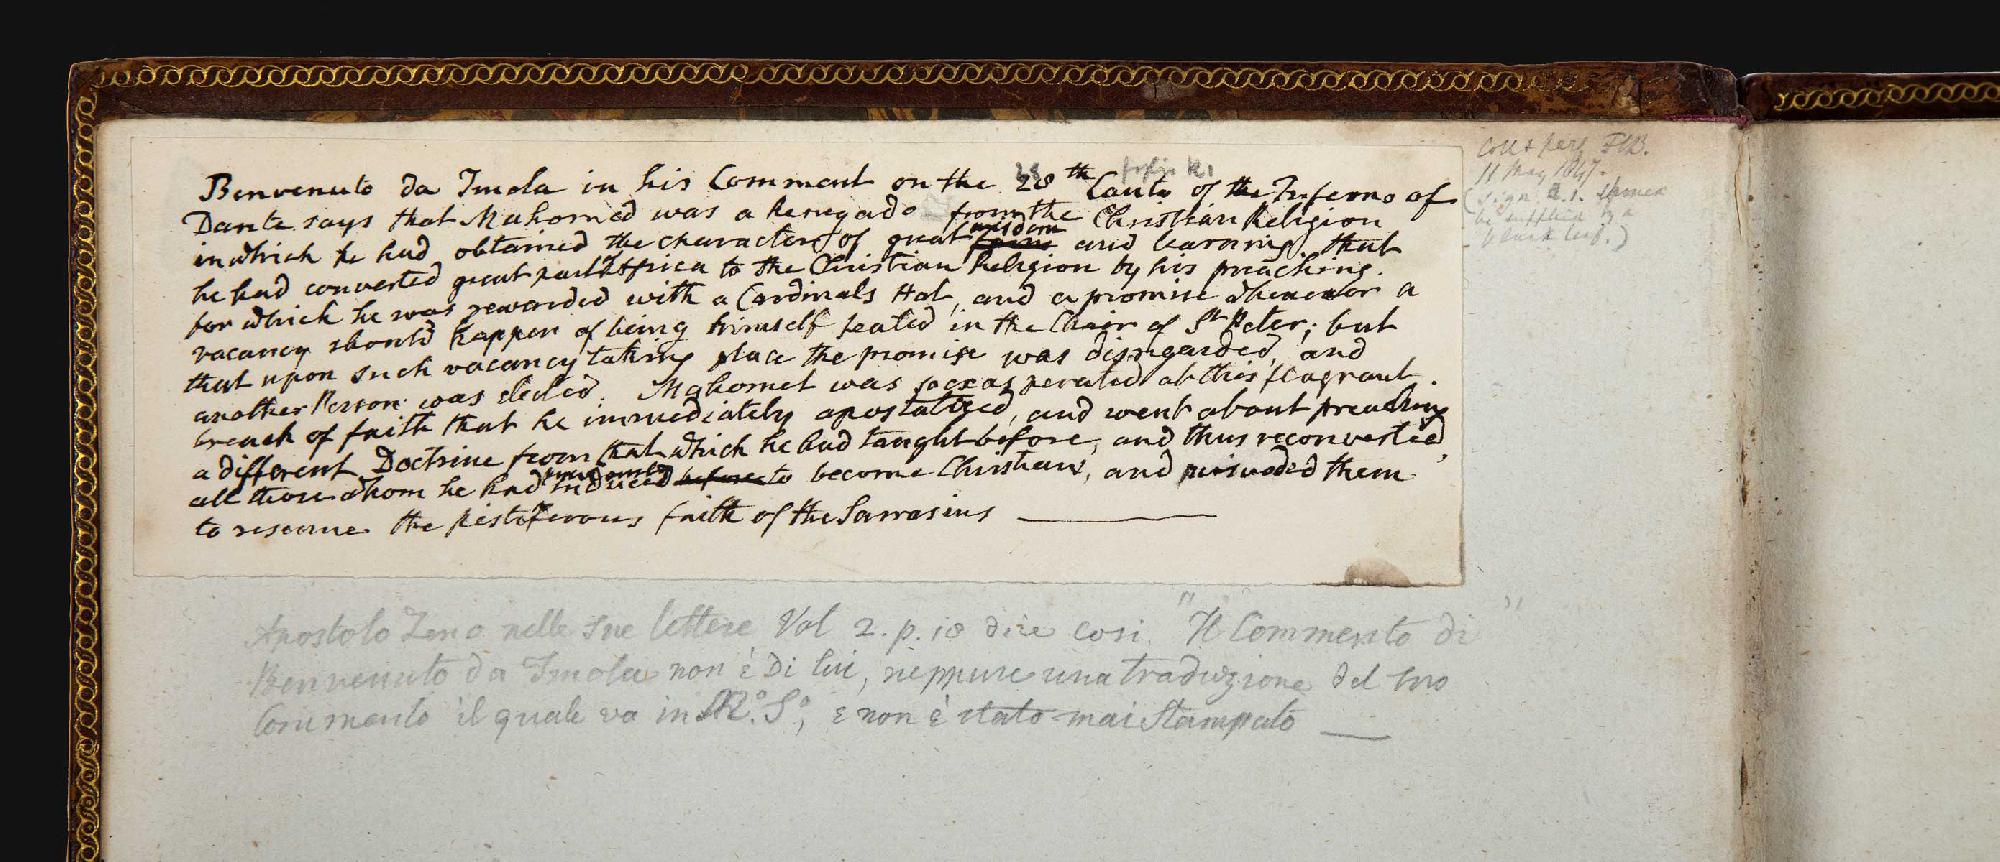 Benvenuto da Imola in his Comment on the 28th Canto of the Inferno of
Dante says that Mahomed was a Renegado from the Christian Religion
in which he had obtained the character of great wisdom and learning, that
he had converted great part Africa to the Christian Religion by his preaching.
for which he was rewarded with a Cardinals Hat, and a promise whenever a
vacancy should happen of being himself seated in the Chair of St Peter; but
that upon such vacancy taking place the promise was disregarded, and
another Person was elected. Mahomet was so exasperated at this flagrant
breach of faith that he immediately apostatized, and went about preaching
a different Doctrine from that which he had taught before, and thus reconverted
all those whom he had induced before to become Christians, and persuaded them
to resume the pestiferous faith of the Sarrasins
Apostolo Zeno nelle sue lettere Vol 2. p. 18 dice cosi "Il Commento di"
Benvenuto da Imola non è di lui, neppure una traduzione del suo
Commento il quale va in M.o S.o, e non è stato mai stampato
Coll & perf FSB.
11 May 1847.
(sign a.1. should
be supplied by a
blank leaf.)